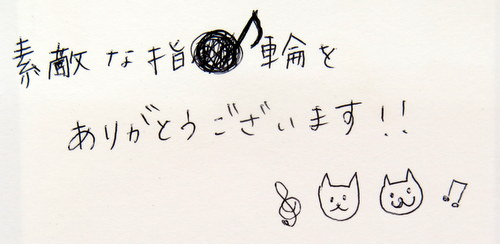 素敵な指輪を
ありがとうございます!!